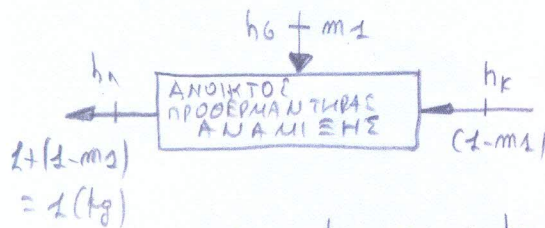 h6 m1
hλ
ΑΝΟΙΚΤΟΣ
ΠΡΟΘΕΡΜΑΝΤΗΡΑΣ
ΑΝΑΜΙΞΗΣ
hκ
(1-m1)
1+(1-m1)
= 1 (kg)